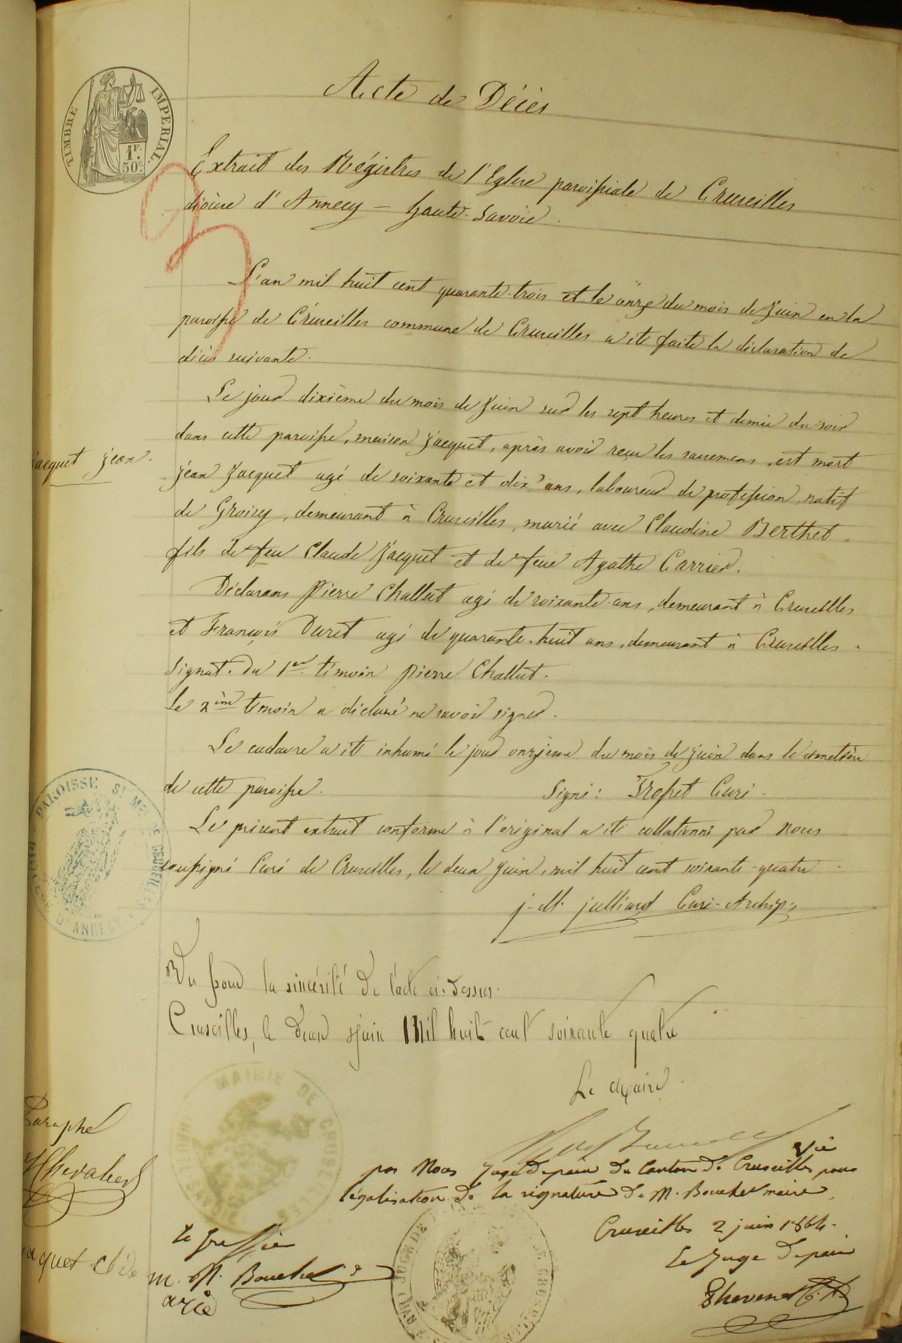 Acte de Décès
TIMBRE IMPERIAL
1 F.
50 c.
Extrait des Régistres de l'Eglise paroissiale de Cruseilles
diocèse d'Annecy - haute-Savoie.
L'an mil huit cent quarante-trois et le onze du mois de Juin en la
paroisse de Cruseilles commune de Cruseilles a été faite la déclaration de
décès suivante.
Le jour dixième du mois de Juin sur les sept heures et demie du soir
dans cette paroisse, maison Jacquet, après avoir reçu les sacremens, est mort
Jacquet Jean.
Jean Jacquet agé de soixante et dix ans, laboureur de profession, natif
de Groisy, demeurant à Cruseilles, marié avec Claudine Berthet.
fils de feu Claude Jacquet et de feue Agathe Carrier.
Déclarans Pierre Challut agé de soixante ans, demeurant à Cruseilles
et François Duret agé de quarante-huit ans, demeurant à Cruseilles.
Signat. du 1er témoin Pierre Challut.
Le 2ème témoin a déclaré ne savoir signer.
Le cadavre a été inhumé le jour onzième du mois de juin dans le cimetière
de cette paroisse. Signé: Curé.
Le présent extrait conforme à l'original a été collationné par Nous
soussigné Curé de Cruseilles, le deux Juin, mil huit cent soixante-quatre.
J. M. Julliard Curé-Archip.
Vu pour la sincérité de l'acte ci-dessus.
Cruseilles, le deux Juin Mil huit cent soixante quatre
Le Maire.
MAIRIE DE
Vu
par Nous Juge de paix du Canton de Cruseilles pour
légalisation de la signature de M. Bouchet maire.
Cruseilles 2 juin 1864.
Le Juge de paix
Paraphé
Chevalier
Le Greffier
M. Bouchet